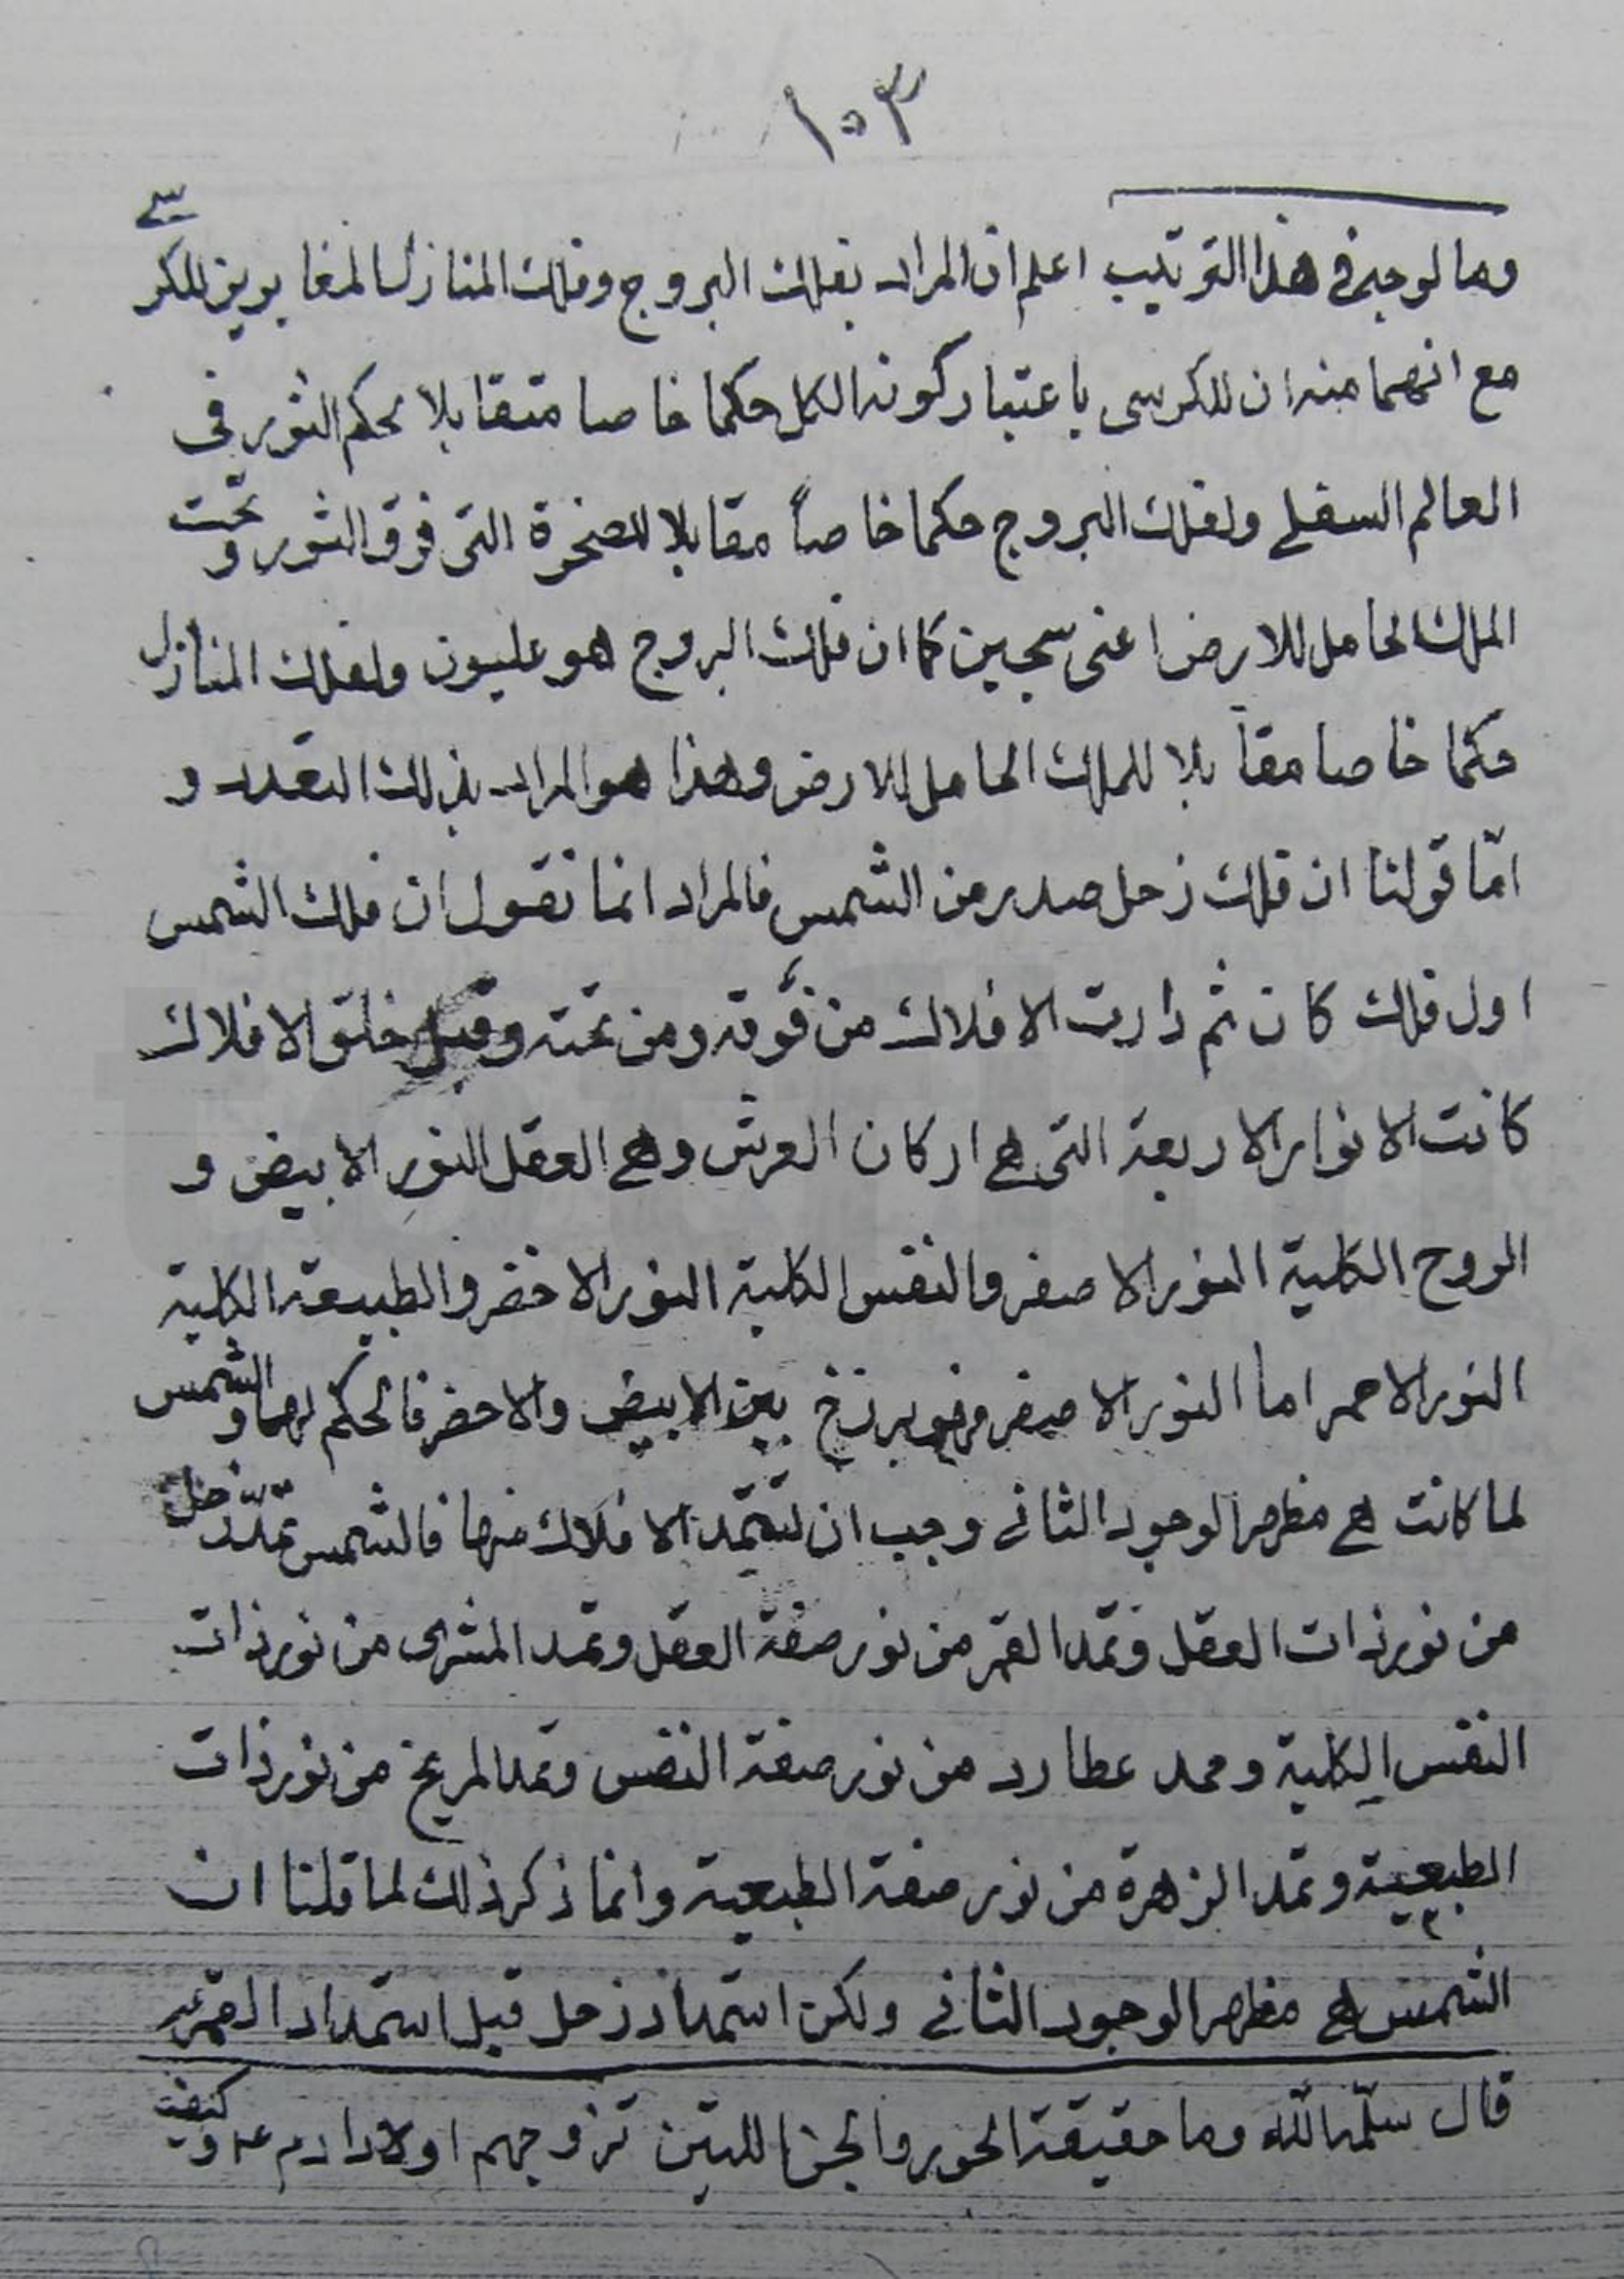 ١٠٣
وما الوجه في هذا الترتيب اعلم ان المراد بفلك البروج وفلك المنازل المغايرين للكرسي
مع انهما منه ان للكرسى باعتبار كونه الكل حكما خاصا متقابلا لحكم الثور في
العالم السفلي ولفلك البروج حكما خاصاً مقابلا للصخرة التى فوق الثور وتحت
الملك الحامل للارض اعنى سجين كما ان فلك البروج هو عليون ولفلك المنازل
حكما خاصا مقابلا للملك الحامل للارض وهذا هو المراد بذلك التعدد و
امّا قولنا ان فلك زحل صدر من الشمس فالمراد انما نقول ان فلك الشمس
اول فلك كان ثم دارت الافلاك من فوقه ومن تحته وقبل خلق الافلاك
كانت الانوار الاربعة التى هي اركان العرش وهي العقل النور الابيض و
الروح الكلية النور الاصفر والنفس الكلية النور الاخضر والطبيعة الكلية
النور الاحمر اما النور الاصفر فهو برزخ بين الابيض والاخضر فالحكم لهما والشمس
لما كانت هي مظهر الوجود الثاني وجب ان تستمد الافلاك منها فالشمس تمدّ زحل
من نور ذات العقل وتمد القمر من نور صفة العقل وتمد المشترى من نور ذات
النفس الكلية وممد عطارد من نور صفة النفس وتمد المريخ من نور ذات
الطبيعية وتمد الزهرة من نور صفة الطبعية وانما ذكر ذلك لما قلنا ان
الشمس هي مظهر الوجود الثاني ولكن استمداد زحل قبل استمداد القمر
قال سلّمه اللّه وما حقيقة الحور والجن اللتين تزوجهم اولاد ادم ع وكيفية